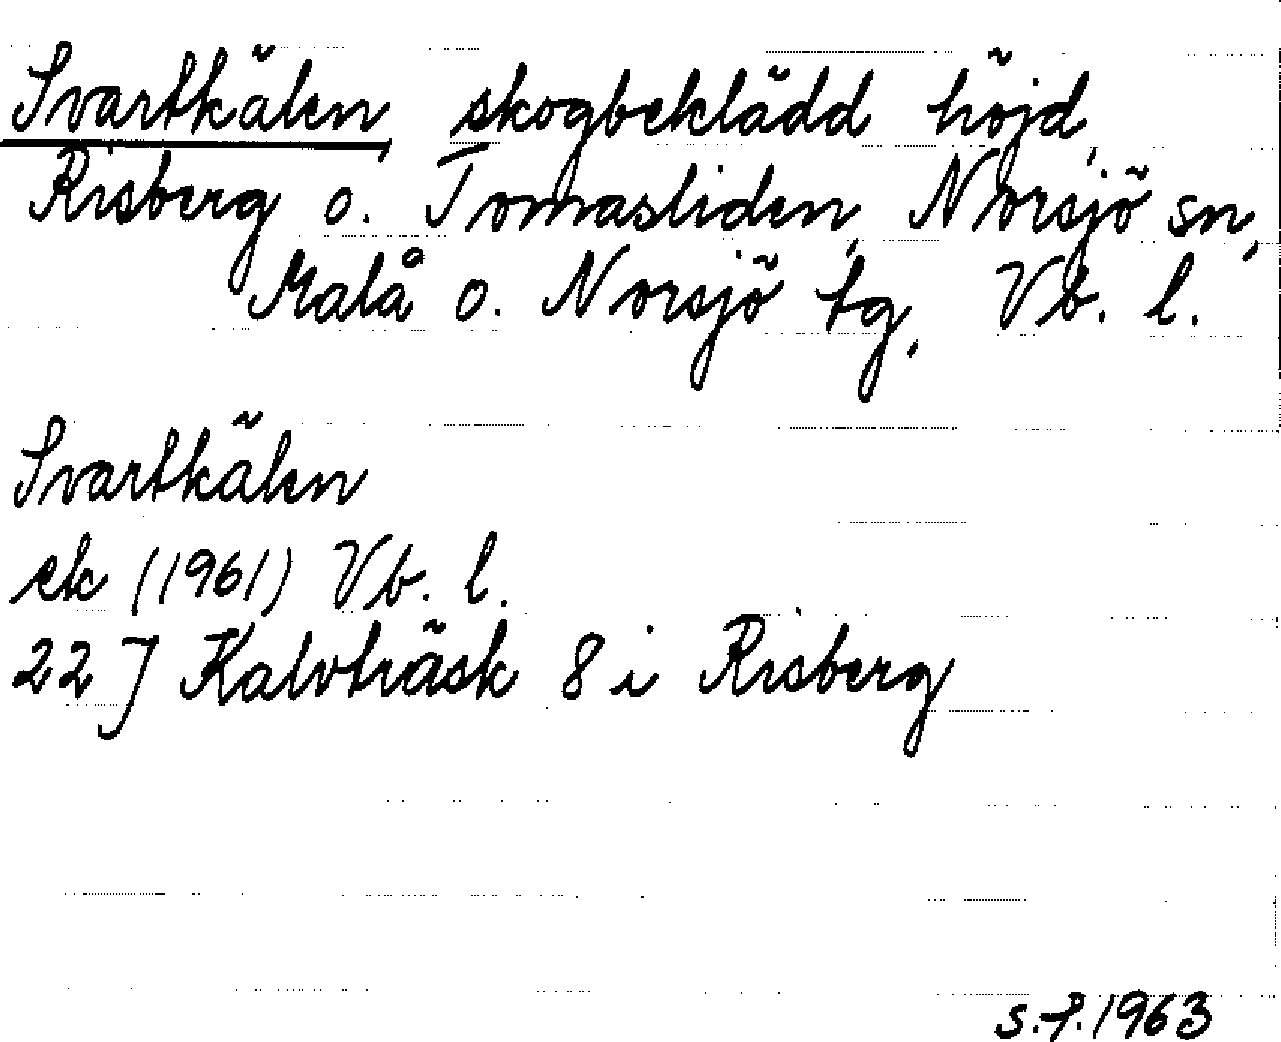 Svartkälen, skogbeklädd höjd,
Risberg o. Tomasliden, Norsjö sn,
Malå o. Norsjö tg, Vb. l.
Svartkälen
ek (1961) Vb. l.
22 J Kalvträsk 8 i Risberg
s.f. 1963